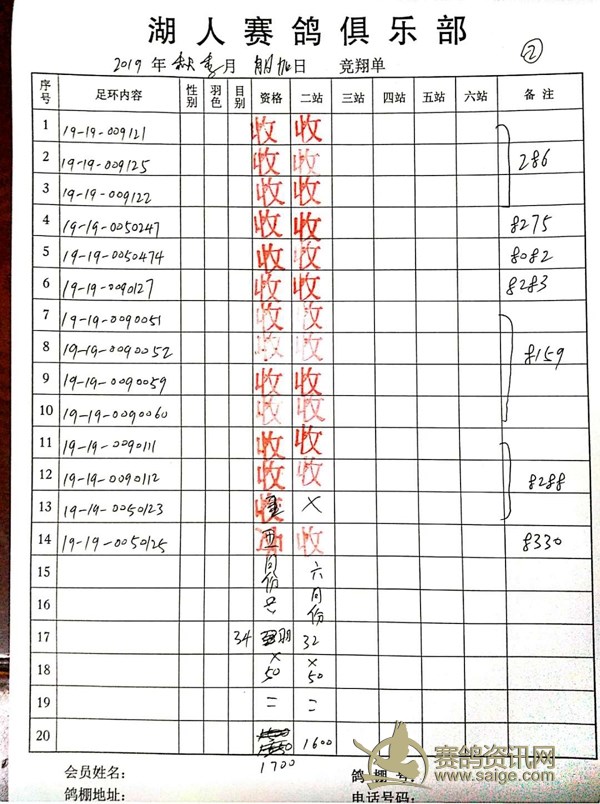 湖人赛鸽俱乐部
②
2019 年 秋季 月 日 竞翔单
序号 足环内容 性别 羽色 目别 资格 二站 三站 四站 五站 六站 备注
1 19-19-009121 收 收
2 19-19-009125 收 收 286
3 19-19-009122 收 收
4 19-19-0050247 收 收 8275
5 19-19-0050474 收 收 8082
6 19-19-0090127 收 收 8283
7 19-19-0090051 收 收
8 19-19-0090052 收 收 8159
9 19-19-0090059 收 收
10 19-19-0090060 收 收
11 19-19-0090111 收 收
12 19-19-0090112 收 收 8288
13 19-19-0050123 收 ×
14 19-19-0050125 收 8330
15 月份 六
16 共 月份
17 34 羽 32
18 × 50 × 50
19 = =
20 1600
1700
会员姓名： 鸽棚号：
鸽棚地址： 电话号码：
赛鸽资讯网
www.saige.com